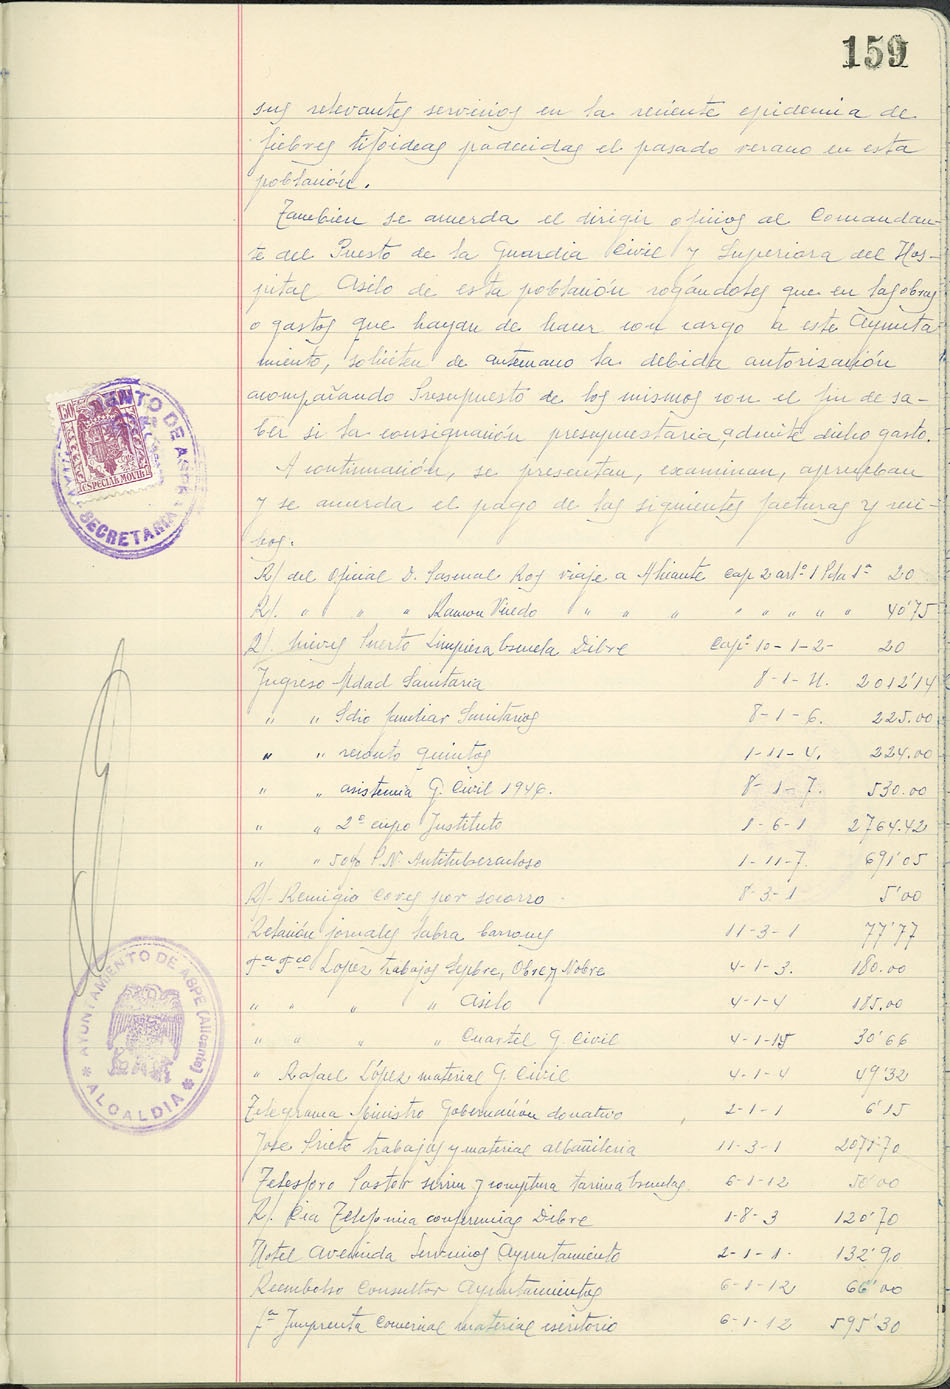 159
sus relevantes servicios en la reciente epidemia de
fiebres tifoideas padecidas el pasado verano en esta
población.
Tambien se acuerda el dirigir oficios al Comandan-
te del Puesto de la Guardia Civil y Superiora del Hos-
pital Asilo de esta población rogándoles que en las obras
o gastos que hayan de hacer con cargo a este Ayunta
miento, soliciten de antemano la debida autorización
acompañando Presupuesto de los mismos con el fin de sa-
ber si la consignación presupuestaria admite dicho gasto.
A continuación, se presentan, examinan, aprueban
y se acuerda el pago de las siguientes facturas y reci-
bos.
R/ del Oficial D. Pascual Ros viaje a Alicante Cap 2 artº 1 Pda 1ª 20
R/. " " " Ramon Vicedo " " " " " " " " 40'75
R/. Nieves Puerto Limpieza Escuela Dibre Capº 10-1-2- 20
Ingreso Mdad Sanitaria 8-1-11. 2012'14
" " Sdio familiar Sanitarios 8-1-6. 225.00
" " recuento quintos 1-11-4. 224.00
" " asistencia G. Civil 1946. 8-1-7. 530.00
" " 2º cupo Instituto 1-6-1 2764.42
" " 50% P.N. Antituberculoso 1-11-7. 691'05
R/. Remigio Coves por socorro 8-3-1 5'00
Relación jornales 11-3-1 77'77
Fª Fco Lopez trabajos Spbre, Obre y Nobre 4-1-3. 180.00
" " " " Asilo 4-1-4 185.00
" " " " Cuartel G. Civil 4-1-15 30'66
" Rafael López material G. Civil 4-1-4 49'32
Telegrama Ministro Gobernación donativo 2-1-1 6'15
Jose Prieto trabajos y material albañileria 11-3-1 2071'70
Telesforo Pastor y compra tarima Escuelas 6-1-12 50'00
R/. Cia Telefonica conferencias Dibre 1-8-3 120'70
Hotel Avenida Servicios Ayuntamiento 2-1-1. 132'90
Reembolso Consultor Ayuntamientos 6-1-12 66'00
Fª Imprenta Comercial material escritorio 6-1-12 595'30
1'50
ESPECIAL MOVIL
AYUNTAMIENTO DE ASPE
SECRETARIA
AYUNTAMIENTO DE ASPE (Alicante)
ALCALDIA